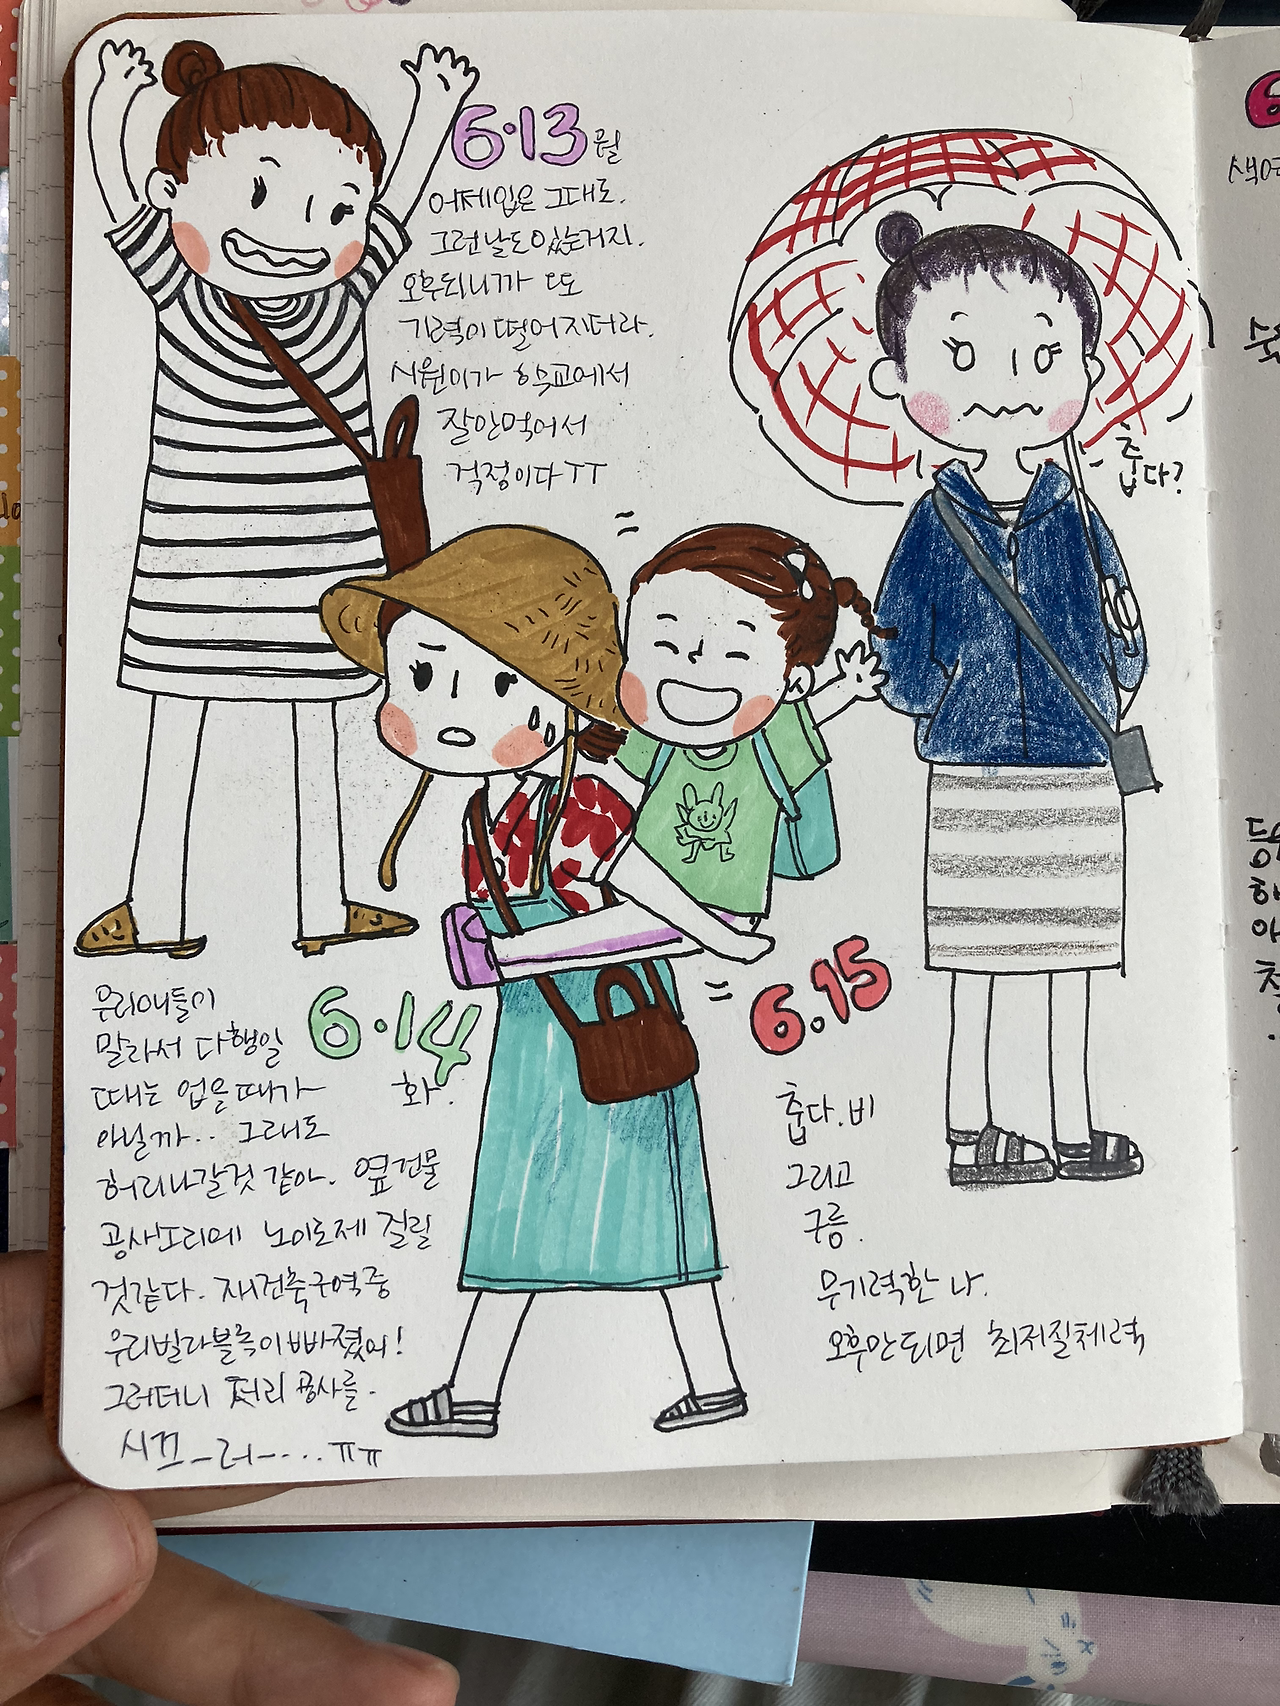 6.13 월
어제입은 그대로.
그런날도있는거지.
오후되니까 또
기력이 떨어지더라.
시원이가 학교에서
잘안먹어서
걱정이다 TT
춥다?
6.14
화.
우리애들이
말라서 다행일
때는 업을때가
아닐까.. 그래도
허리나갈것 같아. 옆건물
공사소리에 노이로제 걸릴
것같다. 재건축구역중
우리빌라블록이 빠졌어!
그러더니 공사를.
시끄_러---... ㅠㅠ
6.15
춥다. 비
그리고
구름.
무기력한 나.
오후만되면 최저질체력